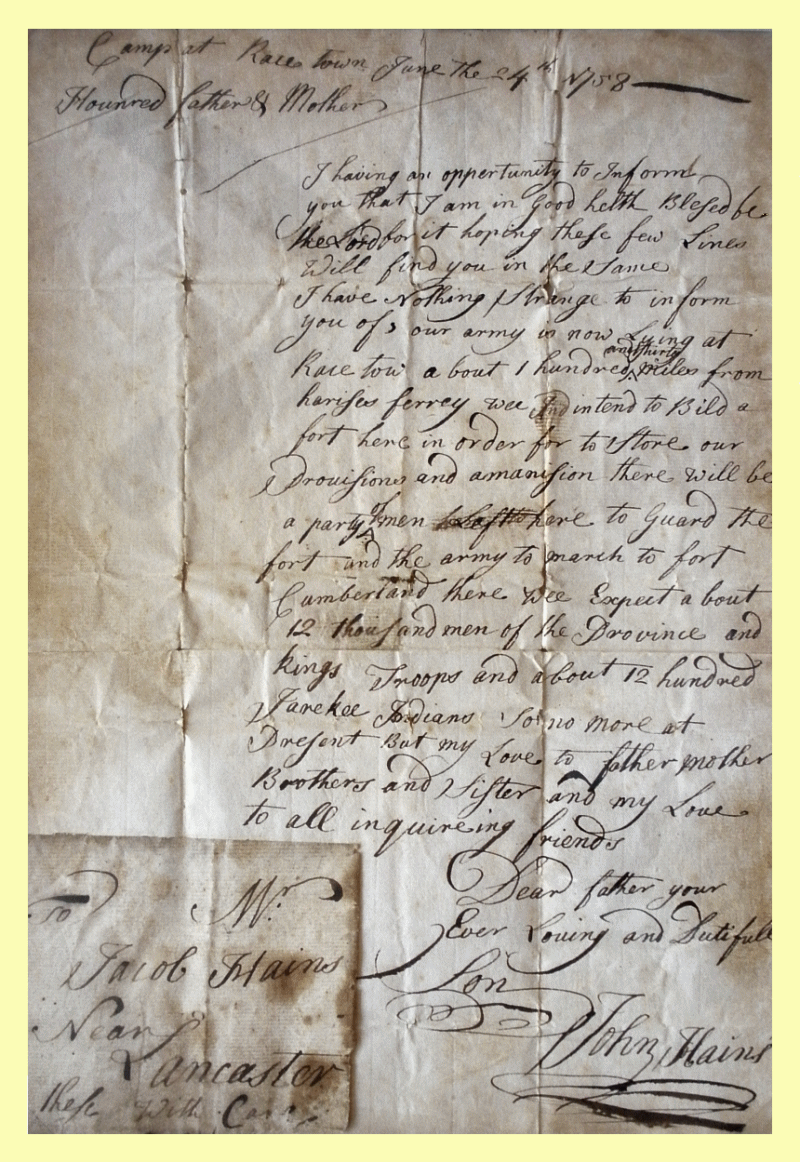 Camp at Race town June the 24th 1758
Hounred father & Mother
I having an opportunity to Inform
you that I am in Good helth Blesed be
the Lord for it hoping these few Lines
Will find you in the Same
I have Nothing Strange to inform
you of our army is now Lying at
and thirty
Race tow a bout 1 hundred miles from
harises ferrey wee and intend to Bild a
fort here in order for to Store our
Provisions and amanision there will be
a party of men here to Guard the
fort and the army to march to fort
Cumberland there wee Expect a bout
12 thousand men of the Province and
kings Troops and about 12 hundred
Indians So no more at
Present But my Love to father mother
Brothers and Sister and my Love
to all inquireing friends
Dear father your
Ever Loving and Dutifull
Son
John Hains
To Mr
Jacob Hains
Near
Lancaster
these With Care